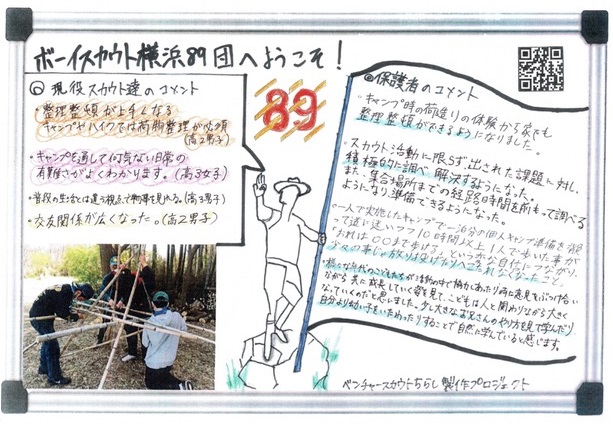 ボーイスカウト横浜89団へようこそ！
◎現役スカウト達のコメント
・整理整頓が上手くなる
キャンプやハイクでは荷物整理が必須
(高2男子)
・キャンプを通して何気ない日常の
有難さがよくわかります。(高3女子)
・普段の生活とは違う視点で物事を見れる。(高3男子)
・交友関係が広くなった。(高2男子)
89
◎保護者のコメント
・キャンプ時の荷造りの体験から家でも
整理整頓ができるようになりました。
・スカウト活動に限らず出された課題に対し、
積極的に調べ、解決するようになった。
また、集合場所までの経路時間を所もって調べる
ようになり、準備できるようになった。
・一人で実施したキャンプで一泊分の個人キャンプ準備を背
って遠い道いつつ10時間以上1人で歩いた事が
「おれは〇〇まで歩けた」という
少々の事じゃ放り投げたりへこたれなくなったこと。
・様々な年代のこどもたちが活動の中で協力しあったり時に意見をぶつけ合い
ながら共に成長していく姿を見て、こどもは人と関わりながら大きく
なっていくのだと思いました。少し大きなお兄さんのやり方を見て学んだり、
自分より幼い子をいたわったりすることで自然に学んでいると感じます。
ベンチャースカウトちらし製作プロジェクト